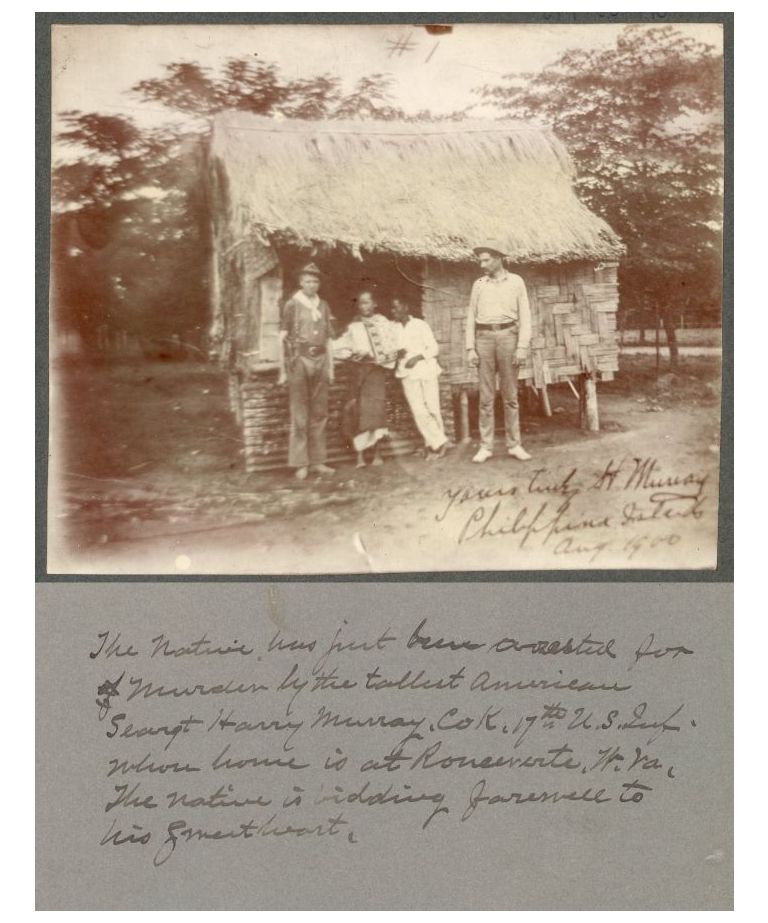 # 1
Yours truly H. Murray
Philippine Islands
Aug. 1900
The native has just been arrested for
murder by the tallest American
Seargt Harry Murray, Co K, 17th U.S. Inf.
whose home is at Ronceverte, W. Va,
The native is bidding farewell to
his sweetheart.